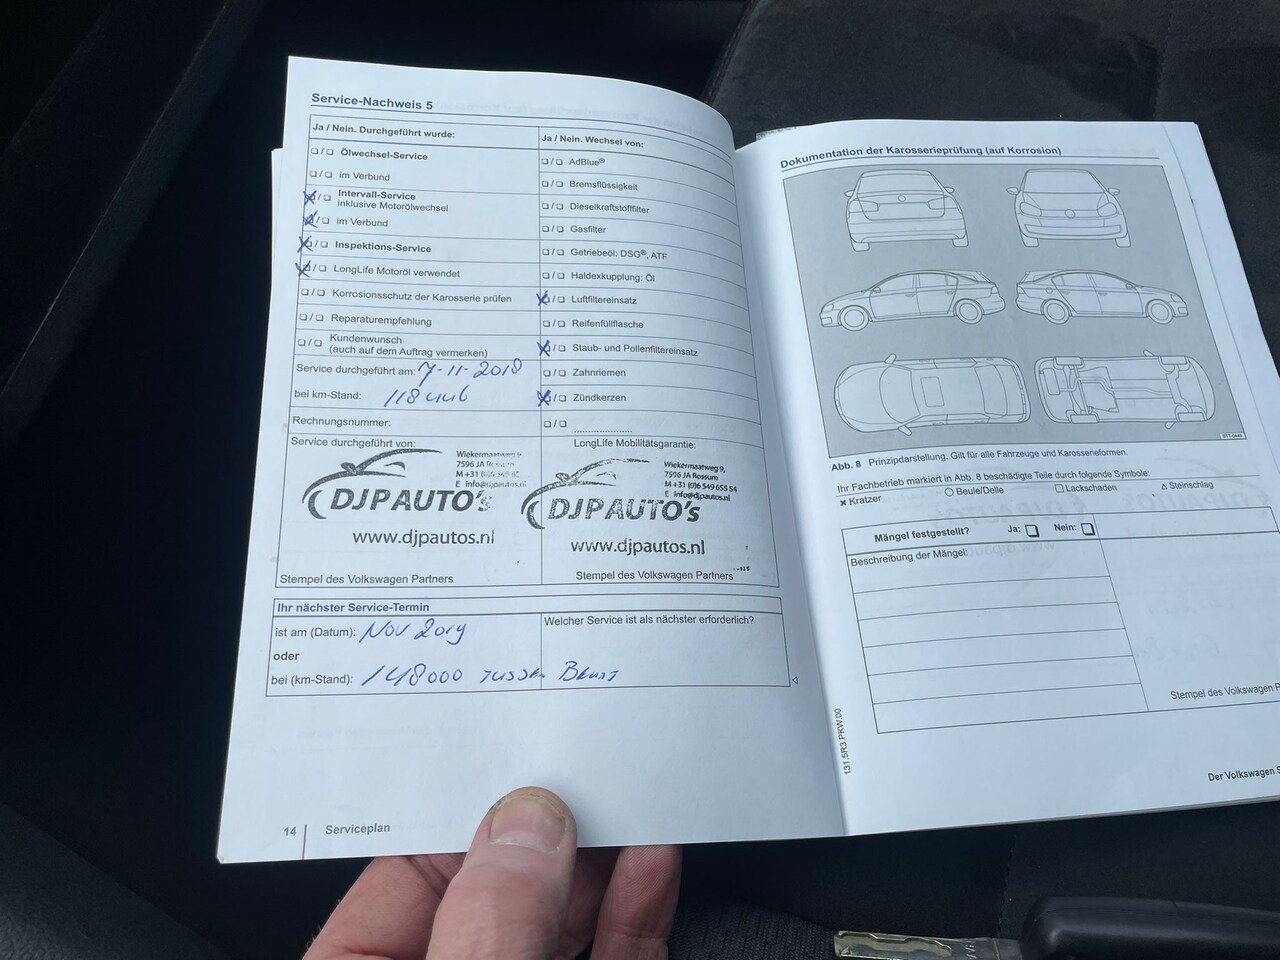 Service-Nachweis 5
Ja / Nein. Durchgeführt wurde:
❑/❑ Ölwechsel-Service
❑/❑ im Verbund
❑/❑ Intervall-Service
inklusive Motorölwechsel
❑/❑ im Verbund
❑/❑ Inspektions-Service
❑/❑ LongLife Motoröl verwendet
❑/❑ Korrosionsschutz der Karosserie prüfen
❑/❑ Reparaturempfehlung
❑/❑ Kundenwunsch
(auch auf dem Auftrag vermerken)
Service durchgeführt am: 7-11-2018
bei km-Stand:
Rechnungsnummer:
Ja / Nein. Wechsel von:
❑/❑ AdBlue®
❑/❑ Bremsflüssigkeit
❑/❑ Dieselkraftstofffilter
❑/❑ Gasfilter
❑/❑ Getriebeöl: DSG®, ATF
❑/❑ Haldexkupplung: Öl
❑/❑ Luftfiltereinsatz
❑/❑ Reifenfüllflasche
❑/❑ Staub- und Pollenfiltereinsatz
❑/❑ Zahnriemen
❑/❑ Zündkerzen
❑/❑ ....................
Service durchgeführt von:
Wiekermaatweg 9
7596 JA Rossum
E info@djpautos.nl
DJPAUTO's
www.djpautos.nl
Stempel des Volkswagen Partners
LongLife Mobilitätsgarantie:
Wiekermaatweg 9,
7596 JA Rossum
M +31 (0)6 549 655 54
E info@djpautos.nl
DJPAUTO's
www.djpautos.nl
Stempel des Volkswagen Partners
Ihr nächster Service-Termin
ist am (Datum): Nov 2019
oder
bei (km-Stand): 148000 TUSSEN BEURT
Welcher Service ist als nächster erforderlich?
14 Serviceplan
Dokumentation der Karosserieprüfung (auf Korrosion)
Abb. 8 Prinzipdarstellung. Gilt für alle Fahrzeuge und Karosserieformen.
Ihr Fachbetrieb markiert in Abb. 8 beschädigte Teile durch folgende Symbole:
× Kratzer ○ Beule/Delle □ Lackschaden △ Steinschlag
Mängel festgestellt? Ja: ❑ Nein: ❑
Beschreibung der Mängel:
Stempel des Volkswagen P
131.5R3.PKW.00
Der Volkswagen S